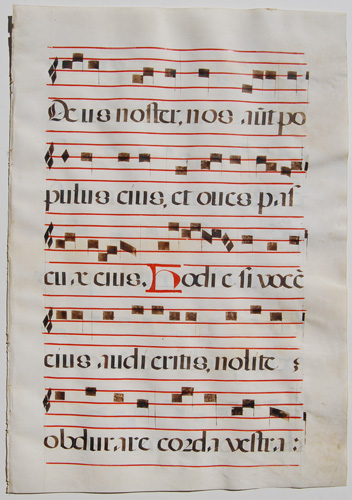 Deus noster, nos aūt po
pulus eius, et oues pas
cuæ eius. Hodie si vocē
eius audieritis, nolite
obdurare corda vestra: